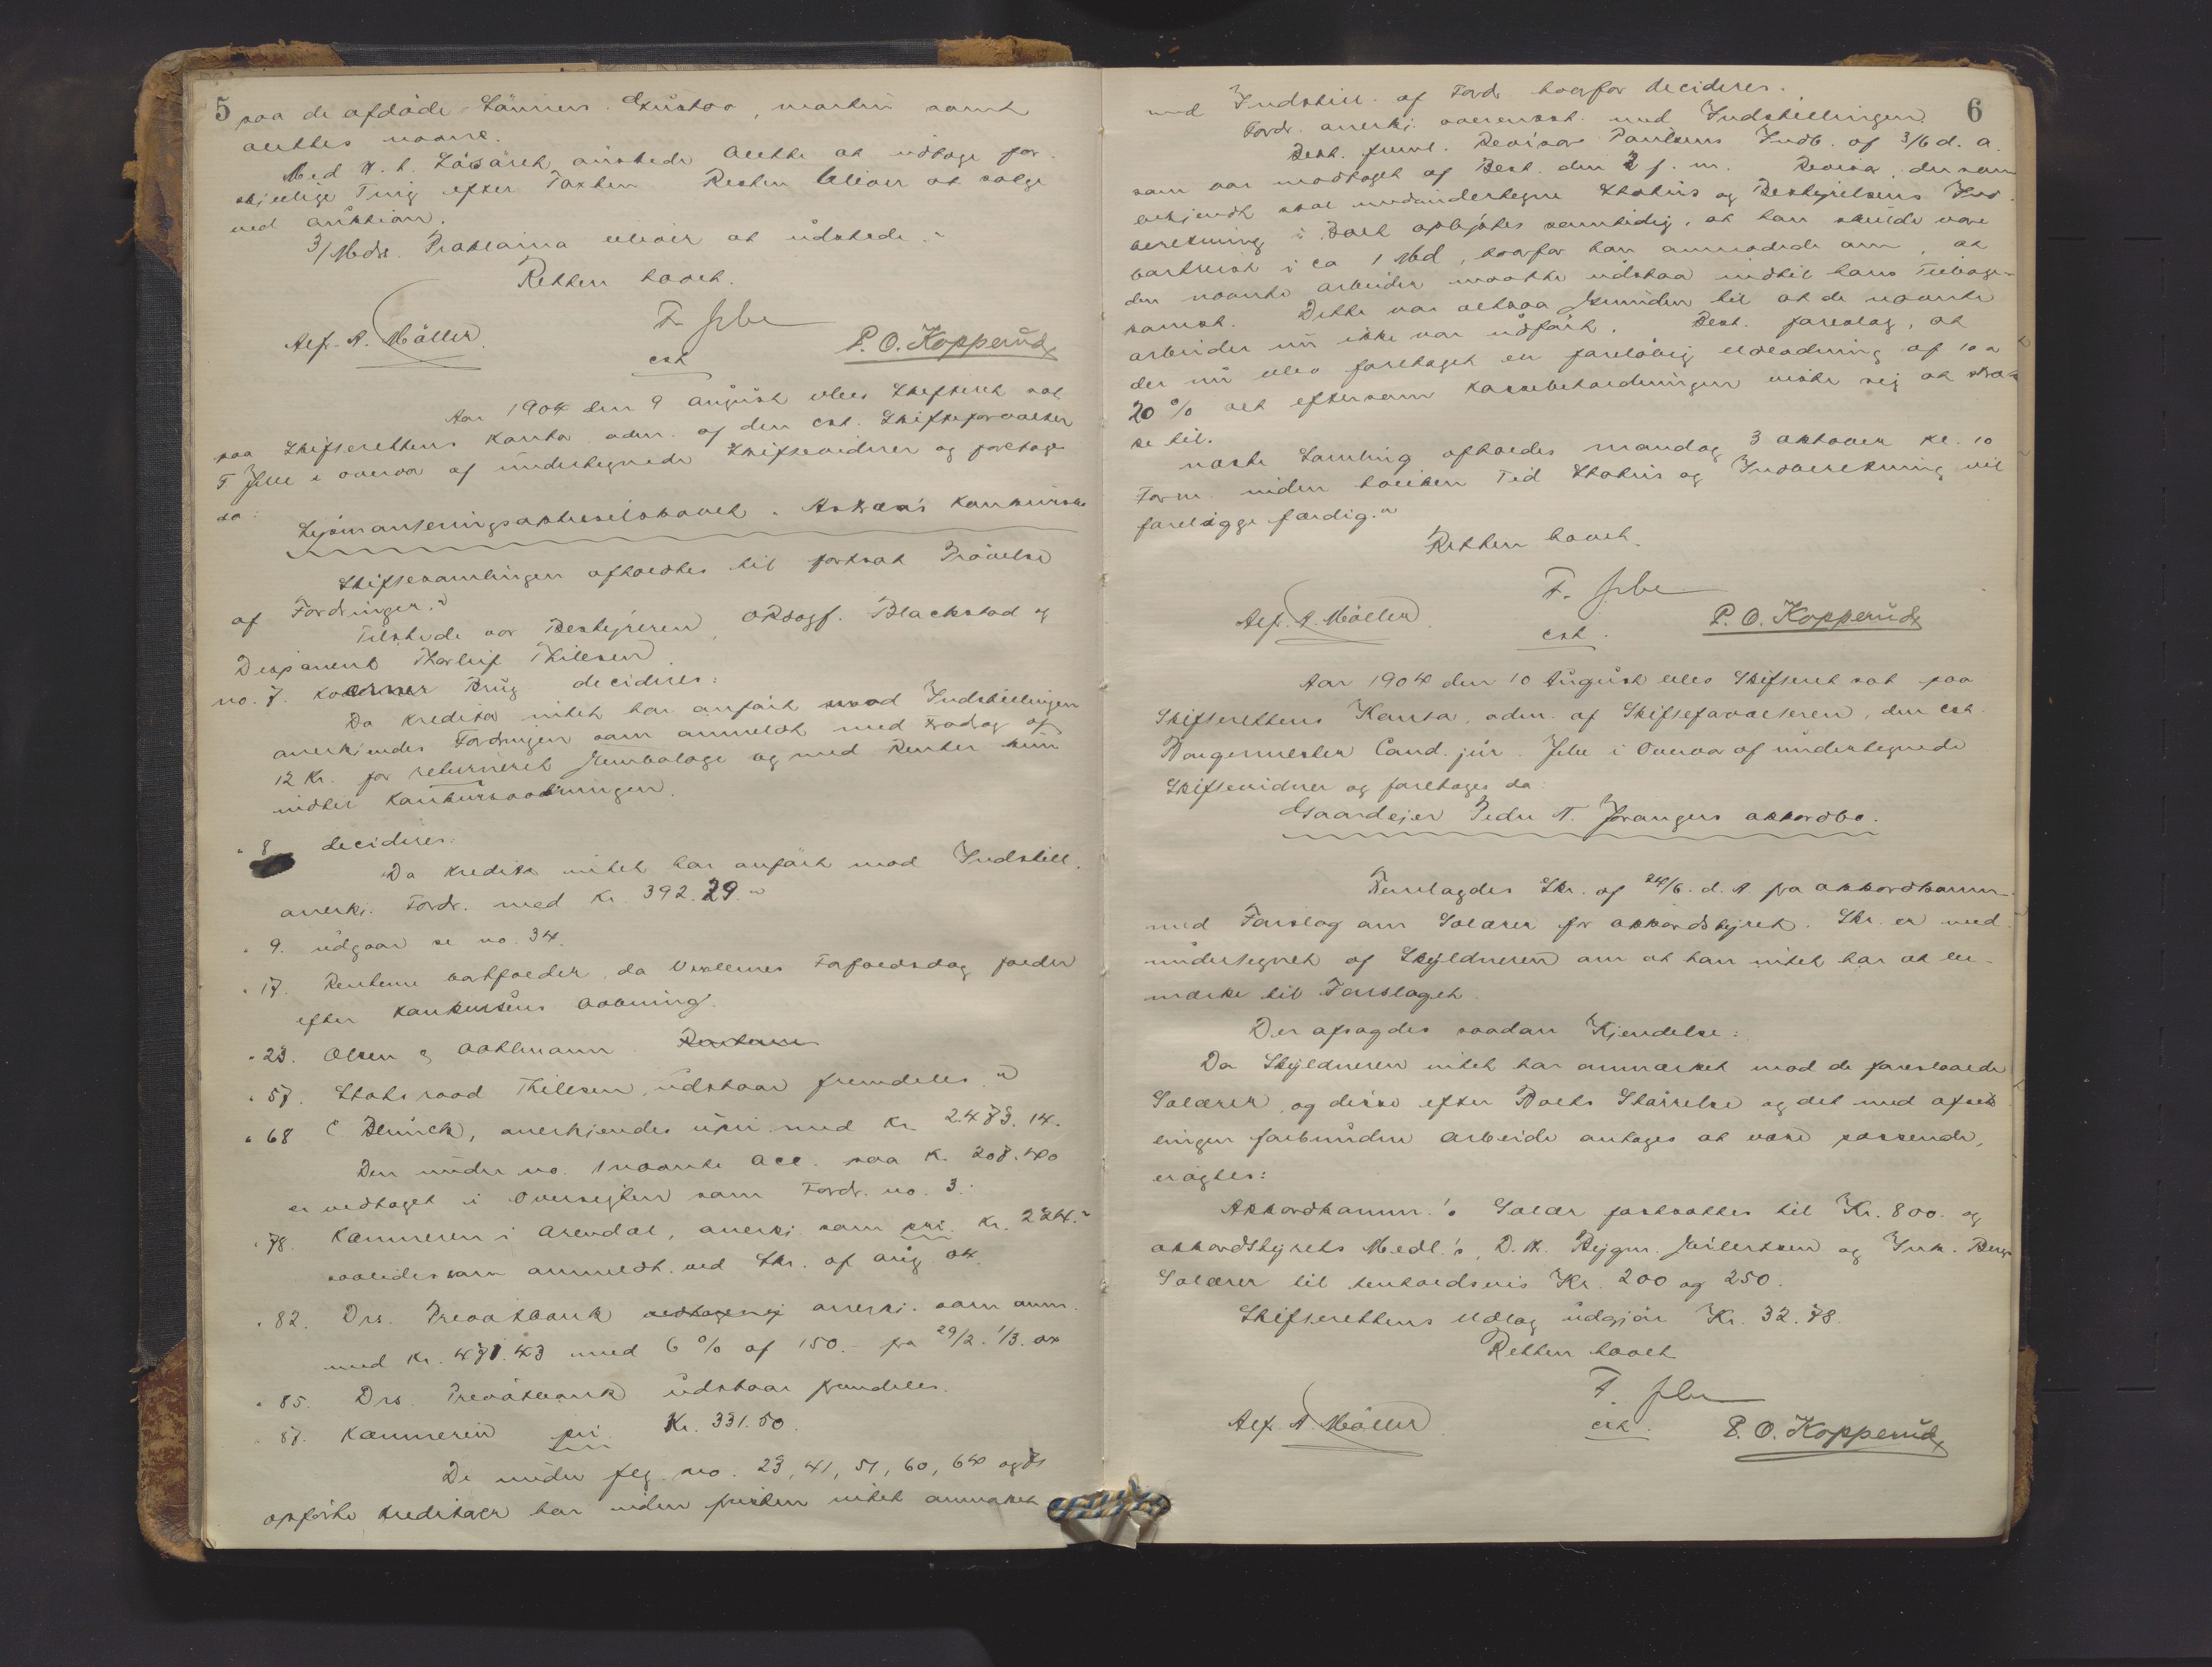 5
paa de afdöde Sönners Gustav, Martin samt
Alettes navne.
Med H. t. Lösöret ønskede Alette at udtage for-
skjellige Ting efter Taxten Resten bliver at sælge
ved Auktion.
3/Mdrs. Proklama bliver at udstede."
Retten hævet.
F. Jebe
cst
Alf. A. Möller.
P. O. Kopperud
Aar 1904 den 9 August blev Skifteret sat
paa Skifterettens Kontor adm. af den cst. Skifteforvalter
F Jebe i overvær af undertegnede Skiftevidner og foretoges
da:
Skiftesamlingen afholdtes til fortsat Prövelse
af Fordringer."
Tilstede var Bestyreren, ORsagf. Blackstad og
Disponent Thorleif Thilesen.
no. 7. Brug decideres:
Da Kreditor intet har anført mod Indstillingen
anerkjendes Fordringen som anmeldt med Fradrag af
12 Kr. for returneret Jernbalage og med Renter kun
indtil Konkursaabningen.
" 8 decideres:
Da Kreditor intet har anført mod Indstill.
anerkj. Fordr. med Kr. 392.29."
" 9. udgaar se no. 34.
" 17. Renterne bortfalder, da Vexlernes Forfaldsdag falder
efter Konkursens Aabning.
" 23. Olsen & Dahlmann.
" 57. Statsraad Thilesen udstaar fremdeles."
" 68 C Blinck, anerkjendes upri. med Kr. 2.473.14.
Den under no. 1 nævnte Acc. paa K. 207.40
er vedtaget i Oversigten som Fordr. no. 3.
" 78. Kæmneren i Arendal, anerkj. som pri. Kr. 224."
saaledes som anmeldt ved Skr. af Aug. ds.
" 82. Drs. Privatbank anerkj. som anm.
med Kr. 471.43 med 6 % af 150.- fra 29/2. 1/3.
" 85. Drs. Privatbank udstaar fremdeles.
" 87. Kæmneren pri. Kr. 331.50.
De under flg. no. 23, 41, 51, 60, 64 og 75
opførte Kreditorer har inden fristen intet anmærket
6
mod Indstill. af Ford. hvorfor decideres.
Fordr. anerkj. overensst. med Indstillingen.
Best. freml. Revisor Paulsens Indb. af 3/6 d. A.
som var modtaget af Best. den 2 f. m. Revisor, der som
bekjendt skal medundertegne Status og Bestyrelsens Ind-
beretning i Boet oplystes samtidig, at han skulde være
bortreist i ca 1 Md, hvorfor han anmodede om, at
den nævnte arbeider maatte udstaa indtil hans Tilbage-
komst. Dette var altsaa Grunden til at de nævnte
arbeider nu ikke var udført. Best. foreslog, at
der nu blev foretaget en foreløbig Udlodning af 10 a
20 % alt eftersom Kassebeholdningen viste sig at
ke til.
Næste Samling afholdes mandag 3 Oktober kl. 10
Form. inden hvilken Tid Status og Indberetning vil
foreligge færdig."
Retten hævet.
F. Jebe
cst.
Alf. A. Möller.
P. O. Kopperud
Aar 1904 den 10 August blev Skifteret sat paa
Skifterettens Kontor, adm. af Skifteforvalteren, den cst.
Borgermester Cand. jur. Jebe i Overvær af undertegnede
Skiftevidner og foretoges da:
Gaardejer Peder N. Jorangers akkordbo.
Fremlagdes Skr. af 24/6. d. A fra akkordkomm-
med Forslag om Solærer for akkordstyret. Skr. er med-
undertegnet af Skyldneren om at han intet har at be-
mærke til Forslaget.
Der afsagdes saadan Kjendelse:
Da Skyldneren intet har anmærket mod de foreslaaede
Solærer, og disse efter Boets Størrelse og det med afvik-
lingen forbundne Arbeide antages at være passende,
eragtes:
Akkordkomm.'s Solær fastsættes til Kr. 800. og
akkordstyrets Medl.'s, D. H. og
Solærer til henholdsvis Kr. 200 og 250.
Skifterettens Udlæg udgjör Kr. 32.78.
Retten hævet
F. Jebe
cst.
Alf. A. Möller.
P. O. Kopperud